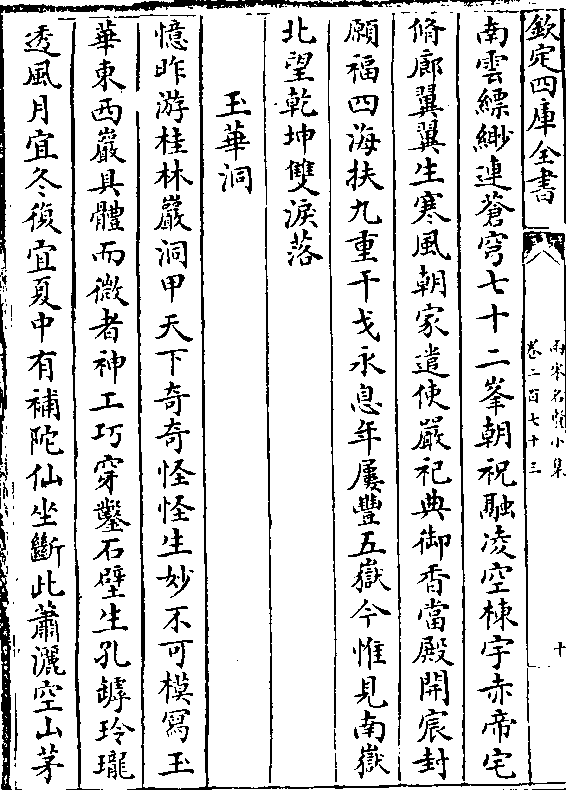 欽定四庫全書
兩宋名賢小集
卷二百七十三
十
南雲縹緲連蒼穹七十二峯朝祝融凌空棟宇赤帝宅
脩廊翼翼生寒風朝家遣使嚴祀典御香當殿開宸封
願福四海扶九重干戈永息年屢豐五嶽今惟見南嶽
北望乾坤雙淚落
玉華洞
憶昨游桂林巖洞甲天下奇奇怪怪生妙不可模寫玉
華東西巖具體而微者神工巧穿鑿石壁生孔罅玲瓏
透風月宜冬復宜夏中有補陀仙坐斷此蕭灑空山茅